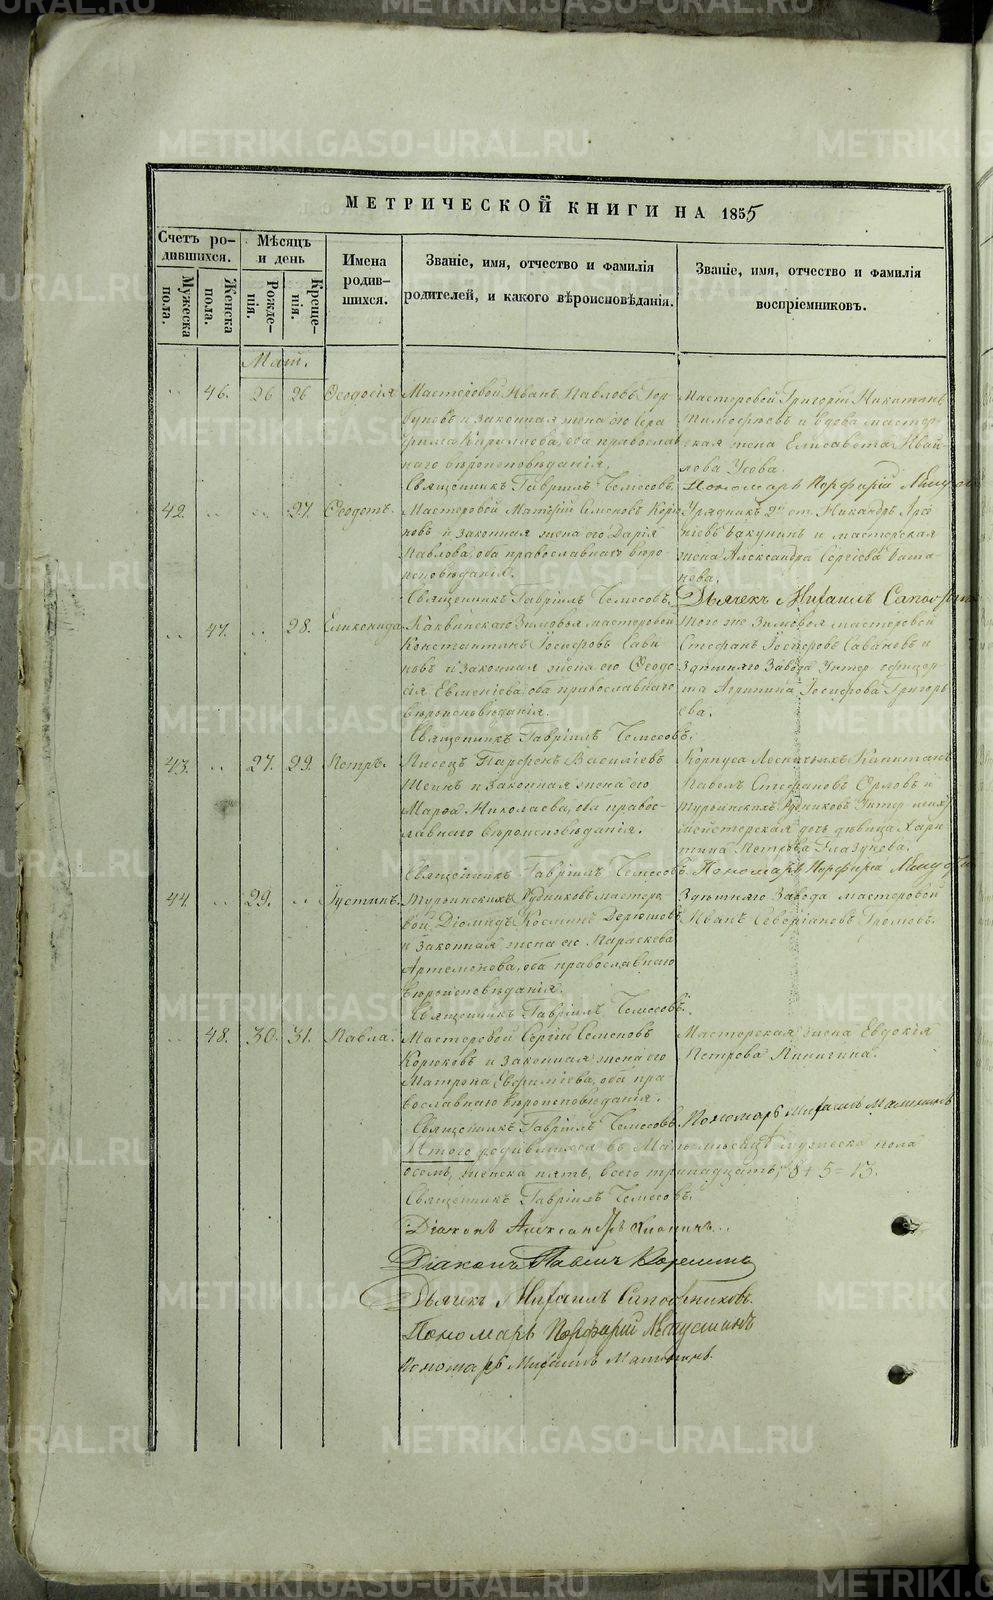 МЕТРИЧЕСКОЙ КНИГИ НА 1855
Счетъ ро-
дившихся.
Мужеска
пола.
Женска
пола.
Мѣсяцъ
и день
Рожде-
нія.
Креще-
нія.
Имена
родив-
шихся.
Званіе, имя, отчество и фамилія
родителей, и какого вѣроисповѣданія.
Званіе, имя, отчество и фамилія
воспріемниковъ.
Май.
46. 26 26 Ѳеодосія
Мастеровой Иванъ Павловъ Гор
буновъ и законная жена его Сера
фима Кирилова, оба православ
наго вѣроисповѣданія.
Священникъ Гавріилъ Чемесовъ.
Мастеровой Григорій Никитинъ
Тимофеевъ и вдова мастер-
ская жена Елисавета Ивай-
лова Усова.
Пономарь Порфирій
42. 27. Ѳеодотъ.
Мастеровой Матѳій Семеновъ Корю
ковъ и законная жена его Дарія
Павлова, оба православнаго вѣро
исповѣданія.
Священникъ Гавріилъ Чемесовъ.
Урядникъ 2й ст. Никандръ Арсе
ніевъ Бакунинъ и мастерская
жена Александра Сергіева
Дьячекъ Михаилъ Сапожников
47. 28. Еликонида
Каквинскаго Зимовья мастеровой
Константинъ Іосифовъ Сави
новъ и законная жена его Ѳеодо
сія Евменіева, оба православнаго
вѣроисповѣданія.
Священникъ Гавріилъ Чемесовъ.
Того же Зимовья мастеровой
Стефанъ Іосифовъ Савиновъ и
Здѣшняго Завода Унтер офицер
та Агрипина Іосифова Григорь
ева.
43. 27. 29. Петръ.
Писецъ Парфенъ Василіевъ
Шеинъ и законная жена его
Марѳа Николаева, оба правос-
лавнаго вѣроисповѣданія.
Священникъ Гавріилъ Чемесовъ.
Корпуса Лесничихъ Капитанъ
Павелъ Стефановъ Орловъ и
Турьинскихъ Рудниковъ Унтер ших
мейстерская дочь дѣвица Хари
тина Петрова Глазунова.
Пономарь Порфирій
44. 29. Іустинъ.
Турьинскихъ Рудниковъ мастеро
вой Діомидъ Космин Дерюшовъ
и законная жена его Параскева
Артемонова, оба православнаго
вѣроисповѣданія.
Священникъ Гавріилъ Чемесовъ.
Здѣшняго Завода мастеровой
Иванъ Северіановъ Громовъ.
48. 30. 31. Павла.
Мастеровой Сергій Семеновъ
Корюковъ и законная жена его
Матрона Евфиміева, оба пра
вославнаго вѣроисповѣданія.
Священникъ Гавріилъ Чемесовъ.
Мастерская жена Евдокія
Петрова Пинигина.
Пономарь Михаилъ
Итого родившихся въ Маѣ мѣсяцѣ мужеска пола
осемь, женска пять, всего тринадцать, 8+5=13.
Священникъ Гавріилъ Чемесовъ.
Діаконъ Александръ
Діаконъ Павелъ
Дьячекъ Михаилъ Сапожниковъ.
Пономарь Порфирій
Пономарь Михаилъ
METRIKI.GASO-URAL.RU